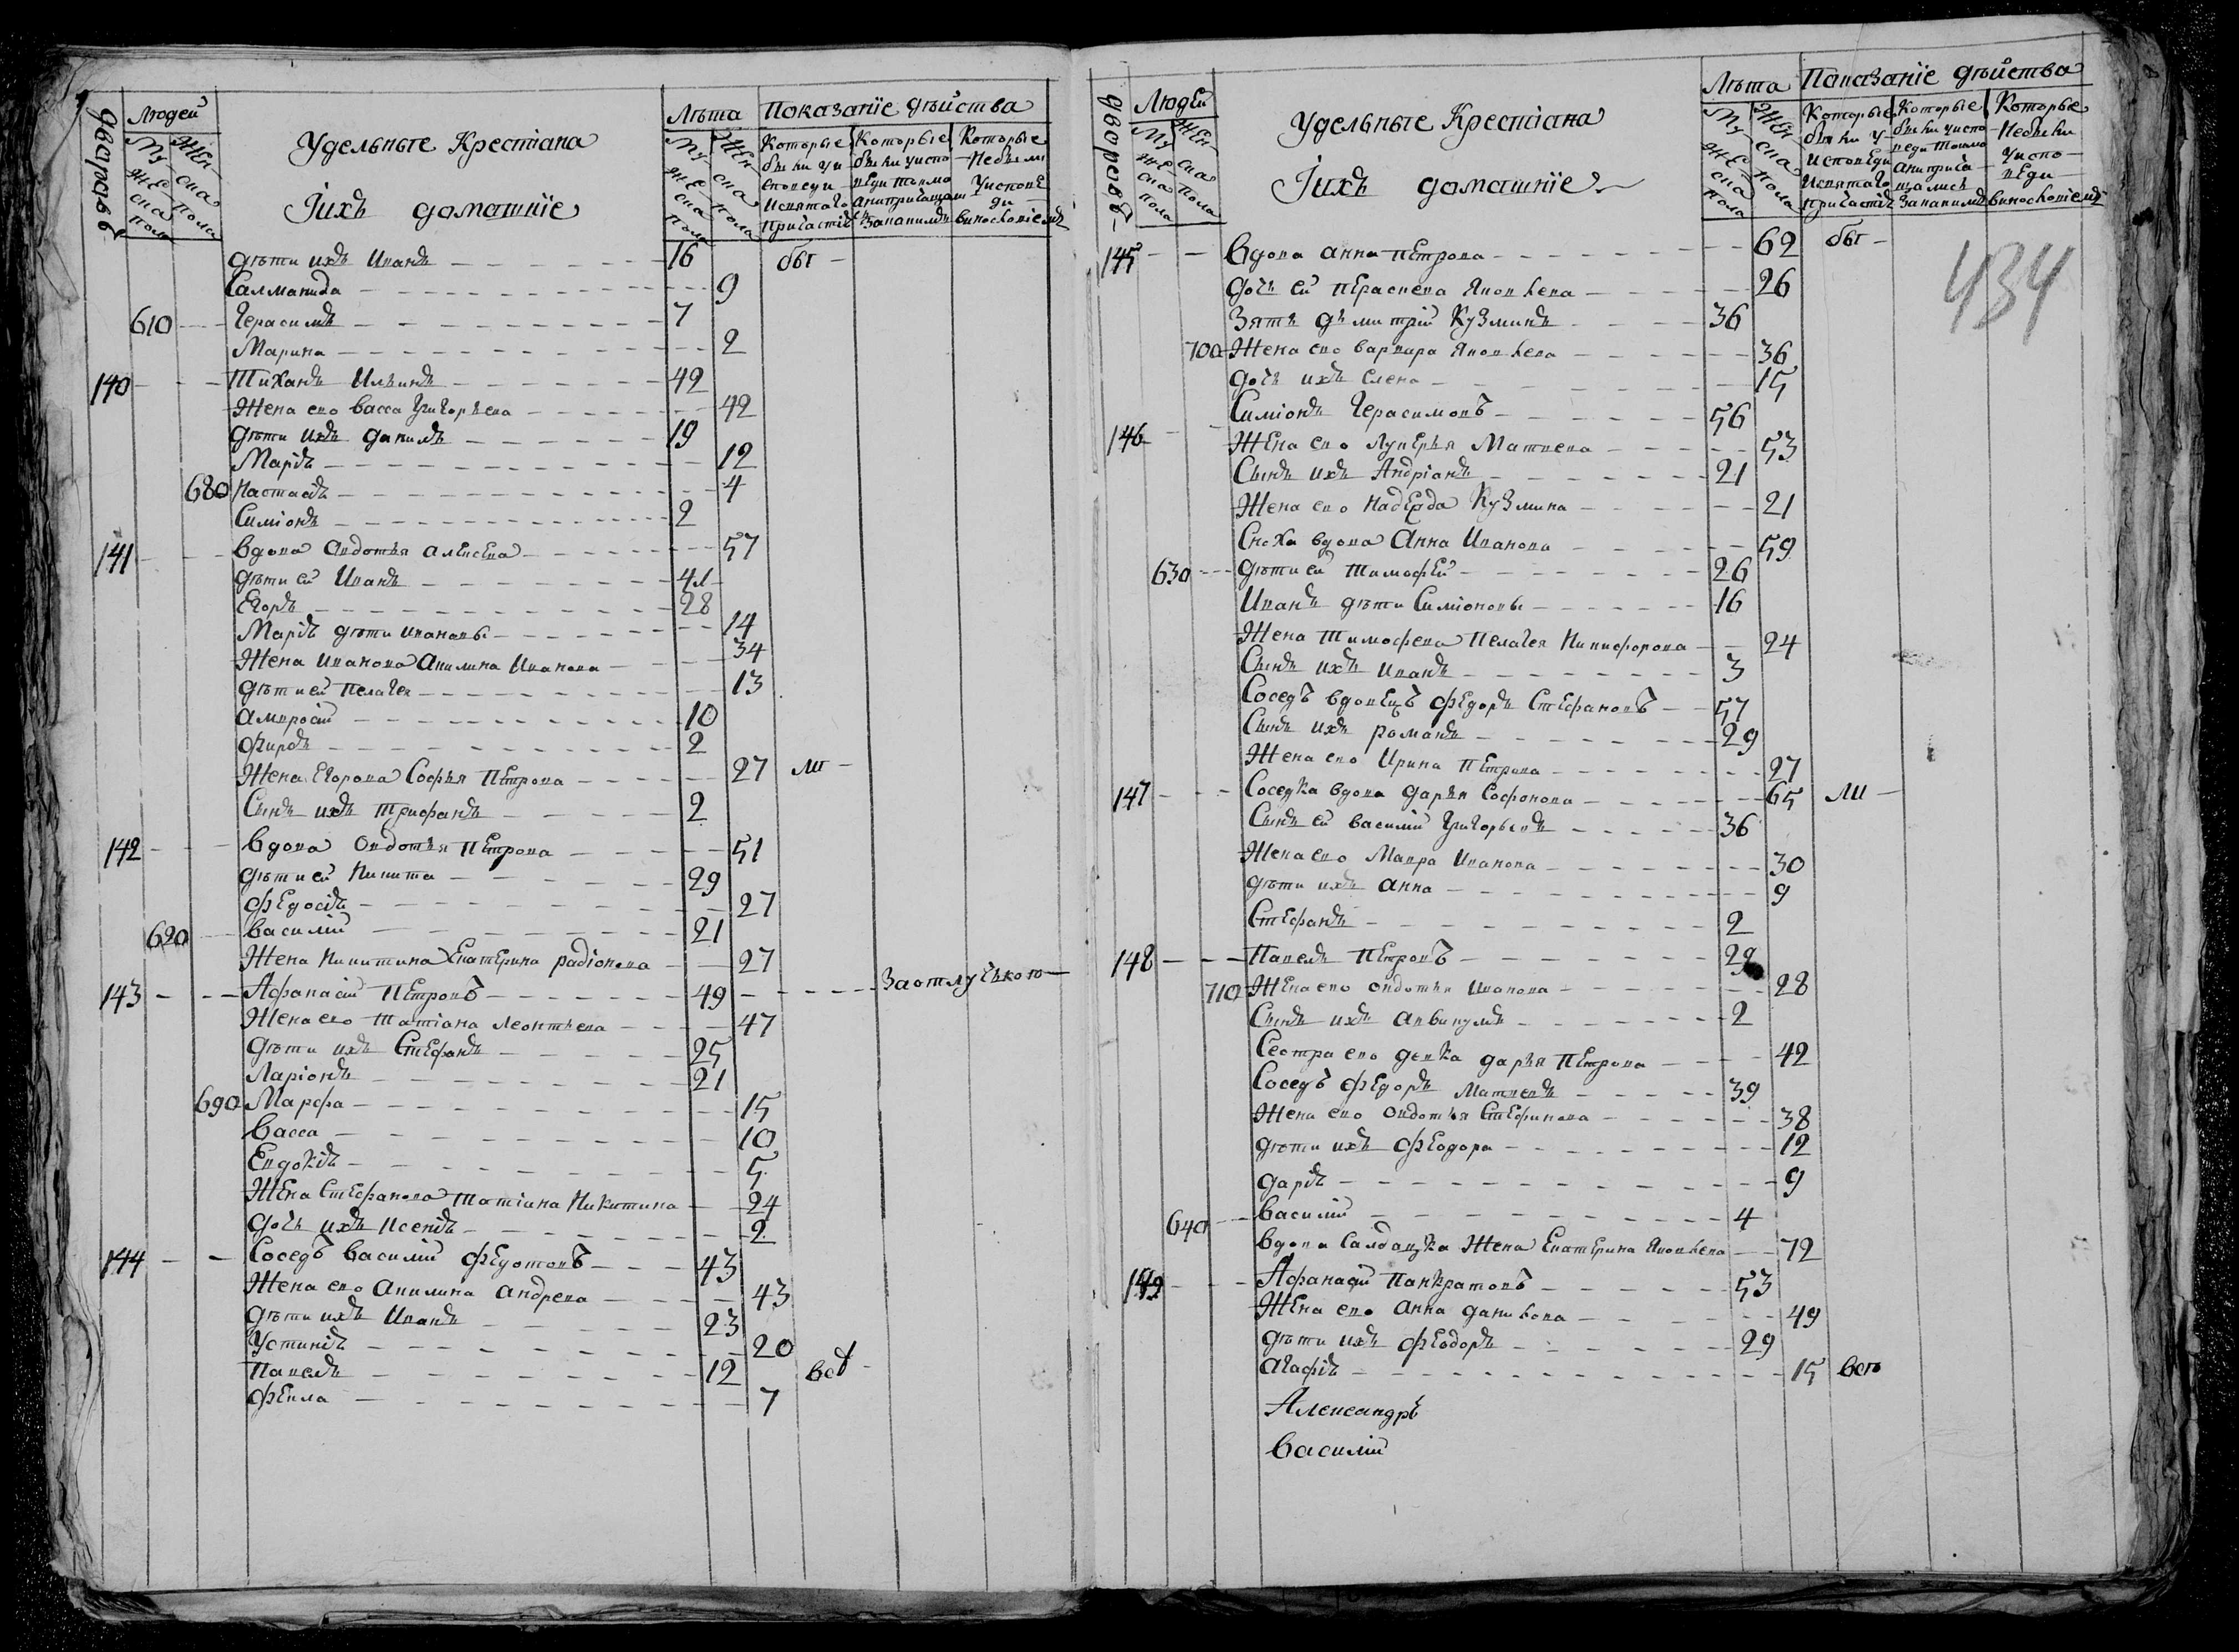 дворовъ
Людей
Мужеска пола
Женска пола
Удельные Крестiана
Iихъ домашнiе
Лѣта
Мужеска пола
Женска пола
Показанiе дѣиства
Которые были уисповеди исвятаго причастiя
Которые были уисповеди токмо анипричащались
Которые Небыли уисповеди
дѣти ихъ Иванъ 16 бы
Салманида 9
610 Герасимъ 7
Марина 2
140 Тиханъ Ильинъ 42
Жена ево васса Григорьева 42
дѣти ихъ данилъ 19
Марiя 12
680 Настасiя 4
Симiонъ 2
141 вдова авдотья алексева 57
дѣти ей Иванъ 41
Егоръ 28
Марiя дѣти ивановы 14
Жена иванова Акилина Иванова 34
дѣти ей Пелагея 13
амвросiй 10
фирсъ 2
Жена Егорова Софья Петрова 27 ли
Сынъ ихъ трифанъ 2
142 вдова овдотья Петрова 51
дѣти ей Никита 29
федосiя 27
620 василiй 21
Жена Никитина Екатерина радiонова 27
143 Афанасiй Петровъ 49 заотлучькою
Жена ево татiана леонтьева 47
дѣти ихъ Стефанъ 25
Ларiонъ 21
690 Марфа 15
васса 10
Евдокiя 5
Жена Стефанова татiана Никитина 24
дочь ихъ Ксенiя 2
144 Соседъ василiй федотовъ 43
Жена ево акилина андрева 43
дѣти ихъ Иванъ 23
Устинiя 20
Павелъ 12 всѣ
фекла 7
дворовъ
Людей
Мужеска пола
Женска пола
Удельные Крестiана
Iихъ домашнiе
Лѣта
Мужеска пола
Женска пола
Показанiе дѣйства
Которые были уисповеди исвятаго причастiя
Которые были уисповеди токмо анипричащались
Которые Небыли уисповеди
434
145 вдова анна петрова 62 бы
дочь ей Параскева Яковлева 26
Зять дъмитрiй Кузминъ 36
700 Жена ево варвара Яковлева 36
дочь ихъ елена 15
Симiонъ Герасимовъ 56
146 Жена ево лукерья Матвева 53
Сынъ ихъ Андрiанъ 21
Жена ево надежда Кузмина 21
Сноха вдова Анна Иванова 59
630 дѣти ей тимофей 26
Иванъ дѣти Симiоновы 16
Жена тимофева Пелагея Никифорова 24
Сынъ ихъ иванъ 3
Соседъ вдовецъ федоръ Стефановъ 57
Сынъ ихъ романъ 29
Жена ево Ирина Петрова 27
147 Соседка вдова дарья Софонова 65 ли
Сынъ ей василiй Григорьевъ 36
Жена ево Мавра Иванова 30
дѣти ихъ анна 9
Стефанъ 2
148 Павелъ Петровъ 29
710 Жена ево овдотья иванова 28
Сынъ ихъ 2
Сестра ево девка дарья Петрова 42
Соседъ федоръ Матвевъ 39
Жена ево овдотья Стефанова 38
дѣти ихъ феодора 12
дарiя 9
640 василiй 4
вдова Салдацка Жена Екатерина Яковлева 72
149 Афанасiй Панкратовъ 53
Жена ево анна данилова 49
дѣти ихъ феодоръ 29
агафiя 15 всѣ
Александръ
василiй